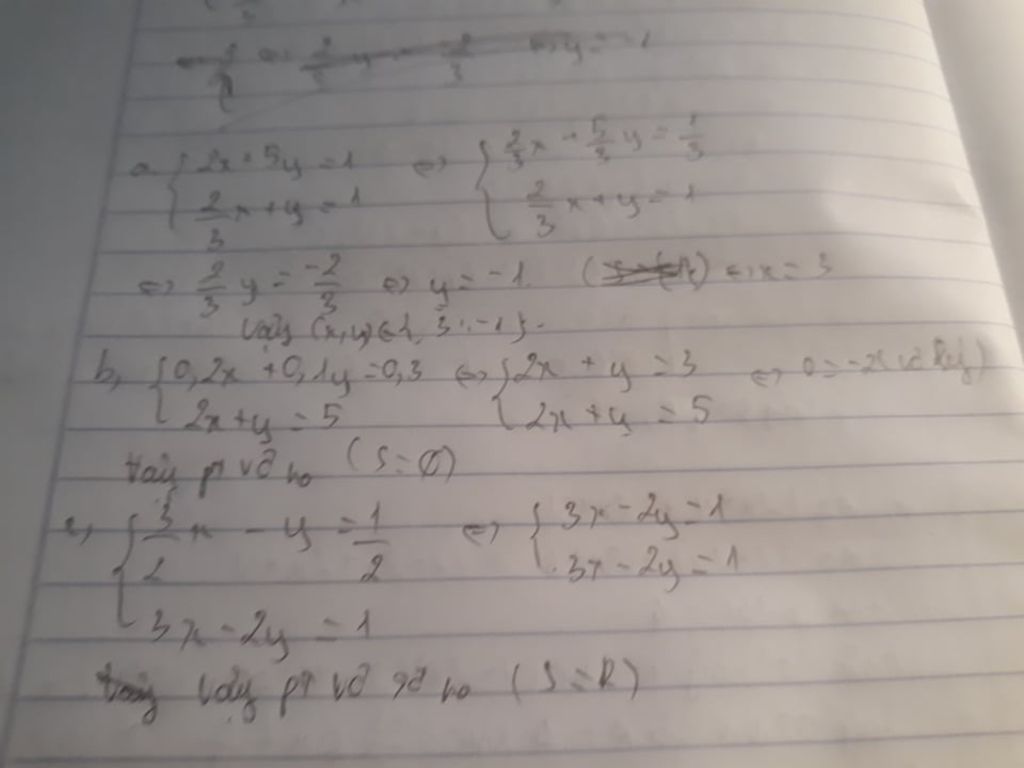 y = -1
a, { 2x + 5y = 1 ⇔ { 2/3 x + 5/3 y = 1/3
2/3 x + y = 1 2/3 x + y = 1
⇔ 2/3 y = -2/3 ⇔ y = -1 ⇔ x = 3
Vậy (x,y) ∈ { 3; -1 }.
b, { 0,2x + 0,1y = 0,3 ⇔ { 2x + y = 3 ⇔ 0 = -2 (vô lý)
2x + y = 5 2x + y = 5
pt vô no (S = ∅)
c, { 3/2 x - y = 1/2 ⇔ { 3x - 2y = 1
3x - 2y = 1 3x - 2y = 1
Vậy pt vô số no (S = R)